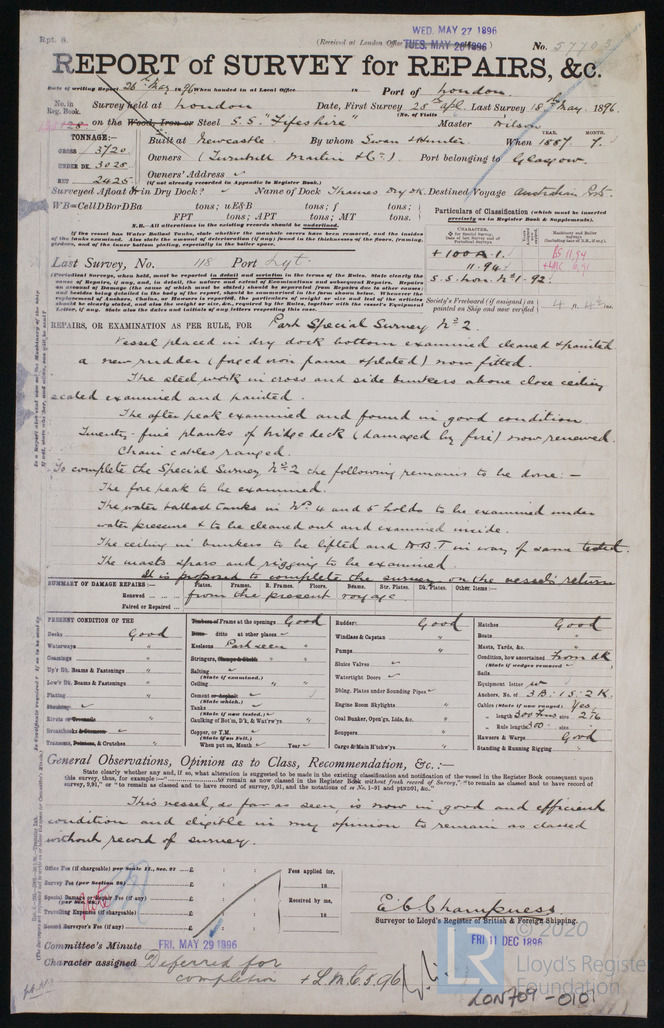 Rpt. 8.
WED. MAY 27 1896
(Received at London Office TUES. MAY 26 1896)
No. 57705
REPORT of SURVEY for REPAIRS, &c.
Date of writing Report 26th May 1896 When handed in at Local Office 18 Port of London.
No. in Reg. Book. Survey held at London Date, First Survey 25th Apl. Last Survey 18th May 1896.
(No. of Visits
on the Wood, Iron or Steel S.S. "Fifeshire" Master Wilson
TONNAGE:—
GROSS 3720
UNDER DK. 3028
NET 2425
Built at Newcastle. By whom Swan & Hunter. When 1887 7.
YEAR. MONTH.
Owners (Turnbull Martin & Co.). Port belonging to Glasgow.
Owners' Address
(if not already recorded in Appendix to Register Book.)
Surveyed Afloat or in Dry Dock? Name of Dock Thames Dry Dk. Destined Voyage
WB=CellDBorDBa tons; uE&B tons; f tons;
FPT tons; APT tons; MT tons.
N.B.—All alterations in the existing records should be underlined.
Particulars of Classification (which must be inserted precisely as in Register Book & Supplements).
+ 100 A.1.
11.94
S.S. Lon. No 1-92.
BS 11,94
+LMC 6,91
Last Survey, No. 118 Port Lyt.
Society's Freeboard (if assigned) as painted on Ship and now verified
REPAIRS, OR EXAMINATION AS PER RULE, FOR Part Special Survey No 2.
Vessel placed in dry dock bottom examined cleaned & painted
a new rudder (forged iron frame & plated) now fitted.
The steel work in cross and side bunkers above close ceiling
scaled examined and painted.
The after peak examined and found in good condition.
Twenty-five planks of bridge deck (damaged by fire) now renewed.
Chain cables ranged.
To complete the Special Survey No 2 the following remains to be done:—
The fore peak to be examined.
The water ballast tanks in Nos. 4 and 5 holds to be examined under
water pressure & to be cleaned out and examined inside.
The ceiling in bunkers to be lifted and W.B.T in way of same tested.
The masts spars and rigging to be examined.
It is proposed to complete the survey on the vessel's return
from the present voyage.
SUMMARY OF DAMAGE REPAIRS:— Plates. Frames. R. Frames. Floors. Beams. Str. Plates. Dk. Plates. Other Items:—
Renewed
Faired or Repaired
PRESENT CONDITION OF THE
Decks Good
Waterways "
Coamings "
Up'r Dk. Beams & Fastenings "
Low'r Dk. Beams & Fastenings "
Plating "
Planking
Rivets or Treenails "
Breasthooks
Transoms, Pointers, & Crutches "
Timbers or Frames at the openings Good
Ditto ditto at other places
Keelsons Part seen
Stringers, Clamps & Shelfs "
Salting
(State if examined.)
Ceiling "
Cement or Asphalt
(State which.)
Tanks
(State if now tested.)
Caulking of Bot'm, D'k, & Wat'rw'ys "
Copper, or Y.M.
(State if on Felt.)
When put on, Month Year
Rudder: Good
Windlass & Capstan "
Pumps "
Sluice Valves
Watertight Doors
Dblng. Plates under Sounding Pipes
Engine Room Skylights "
Coal Bunker, Open'gs, Lids, &c. "
Scuppers "
Cargo & Main H'tchw'ys "
Hatches Good
Boats "
Masts, Yards, &c. "
Condition, how ascertained From dk
(State if wedges removed
Sails
Equipment letter
Anchors, No. of 3B : 1S : 2K.
Cables (State if now ranged) Yes
" length 300 fms size 2 1/16
" Rule length 300 size
Hawsers & Warps Good
Standing & Running Rigging "
General Observations, Opinion as to Class, Recommendation, &c. :—
This vessel, so far as seen, is now in good and efficient
condition and eligible in my opinion to remain as classed
without record of survey.
Office Fee (if chargeable) per Scale II., Sec. 27 £
Survey Fee (per Section 28) £
Special Damage or Repair Fee (if any) £
Travelling Expenses (if chargeable) £
Second Surveyor's Fee (if any) £
Fees applied for,
18
Received by me,
18
E C Champness
Surveyor to Lloyd's Register of British & Foreign Shipping.
Committee's Minute FRI. MAY 29 1896
FRI 11 DEC 1896
Character assigned Deferred for
completion + L.M.C. 5.96
© 2020
LR
Lloyd's Register
Foundation
LON709-0101